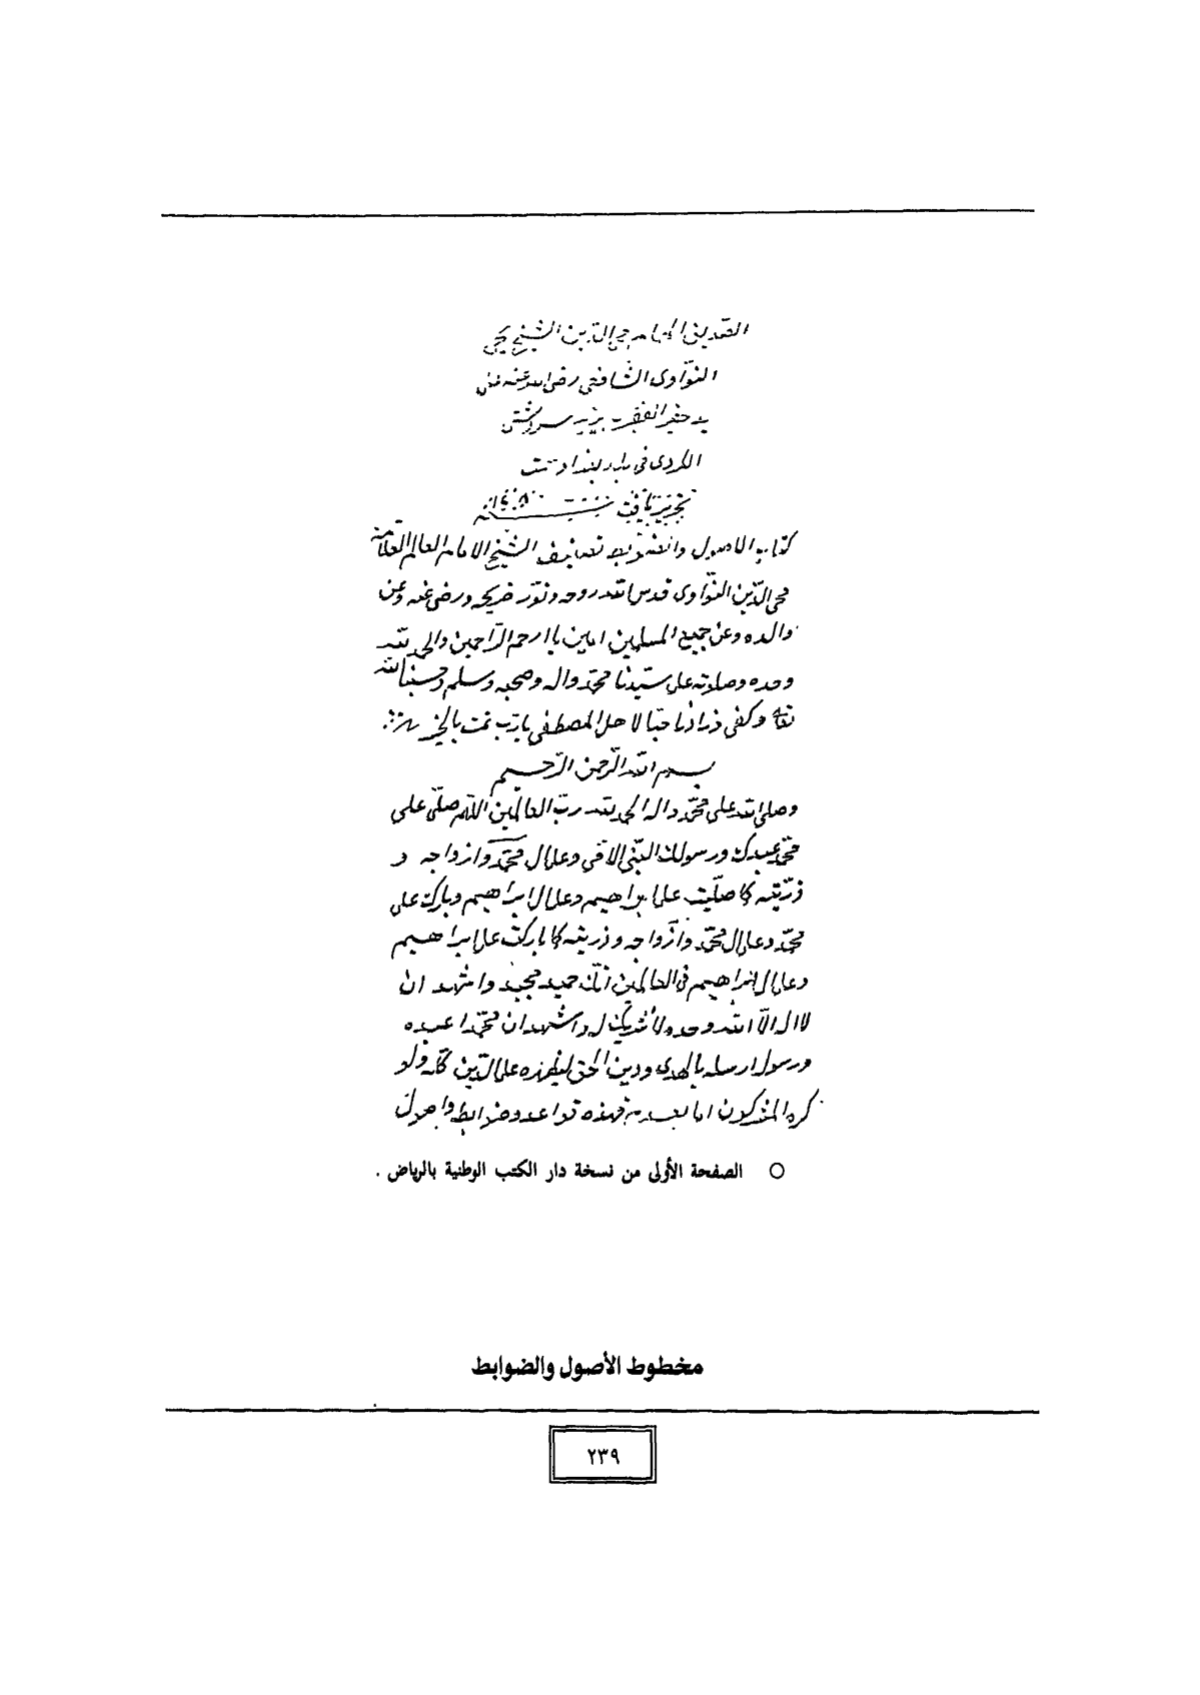 محي الدين الشيخ يحيى
النواوى الشافعى رضى الله عنه
يد حقير الفقير
الكردى فى بلد بغداد
كتاب الاصول والضوابط تصنيف الشيخ الامام العالم العلامة
محى الدين النواوى قدس الله روحه ونور ضريحه ورضى عنه وعن
والده وعن جميع المسلمين امين يا ارحم الراحمين والحمد لله
وحده وصلاته على سيدنا محمد واله وصحبه وسلم وحسبنا الله
وكفى لاهل المصطفى يا رب تمت بالخير
بسم الله الرحمن الرحيم
وصلى الله على محمد واله الحمد لله رب العالمين اللهم صلى على
محمد عبدك ورسولك النبى الامى وعلى ال محمد وازواجه و
ذريته كما صليت على ابراهيم وعلى ال ابراهيم وبارك على
محمد وعلى ال محمد وازواجه وذريته كما باركت على ابراهيم
وعلى ال ابراهيم فى العالمين انك حميد مجيد واشهد ان
لا اله الا الله وحده لا شريك له واشهد ان محمدا عبده
ورسوله ارسله بالهدى ودين الحق ليظهره على الدين كله ولو
كره المشركون اما بعد فهذه قواعد وضوابط واصول
○ الصفحة الأولى من نسخة دار الكتب الوطنية بالرياض .
مخطوط الأصول والضوابط
٢٣٩